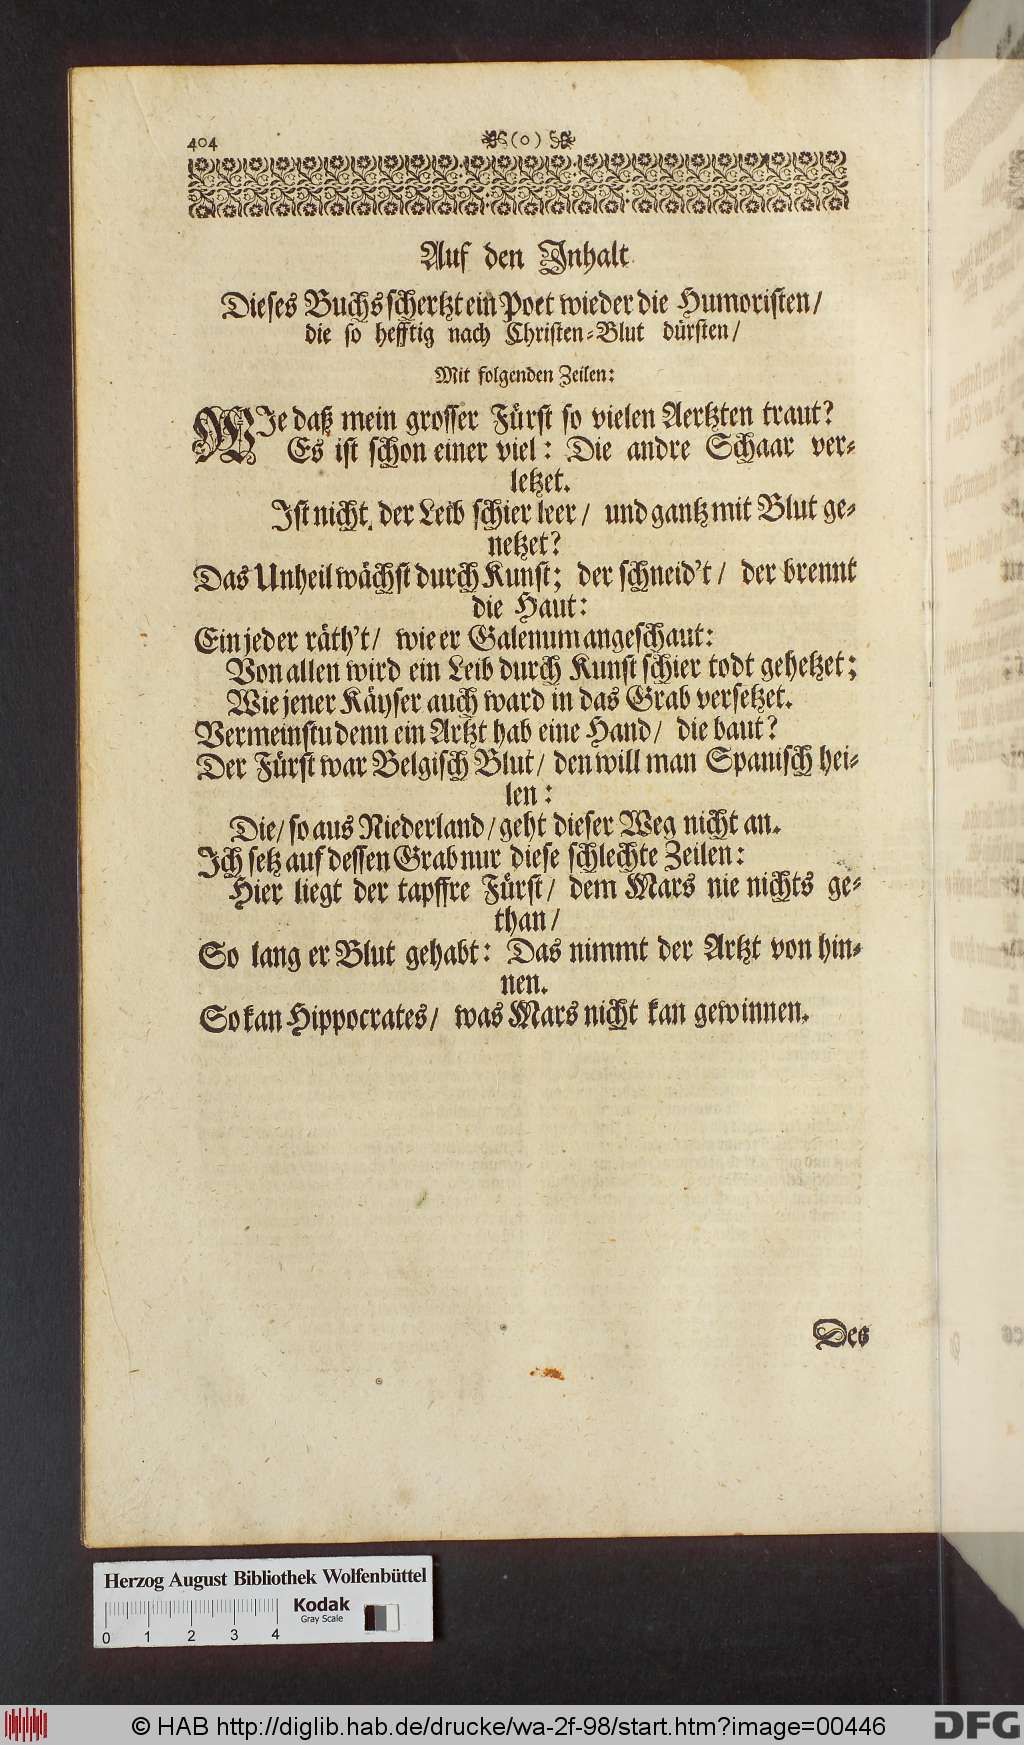 404 (o)
Auf den Inhalt
Dieses Buchs schertzt ein Poet wieder die Humoristen/
die so hefftig nach Christen-Blut dürsten/
Mit folgenden Zeilen:
WIe daß mein grosser Fürst so vielen Aertzten traut?
Es ist schon einer viel: Die andre Schaar ver-
letzet.
Ist nicht der Leib schier leer/ und gantz mit Blut ge-
netzet?
Das Unheil wächst durch Kunst; der schneid't/ der brennt
die Haut:
Ein jeder räth't/ wie er Galenum angeschaut:
Von allen wird ein Leib durch Kunst schier todt gehetzet;
Wie jener Käyser auch ward in das Grab versetzet.
Vermeinstu denn ein Artzt hab eine Hand/ die baut?
Der Fürst war Belgisch Blut/ den will man Spanisch hei-
len:
Die/ so aus Niederland/ geht dieser Weg nicht an.
Ich setz auf dessen Grab nur diese schlechte Zeilen:
Hier liegt der tapffre Fürst/ dem Mars nie nichts ge-
than/
So lang er Blut gehabt: Das nimmt der Artzt von hin-
nen.
So kan Hippocrates/ was Mars nicht kan gewinnen.
Des
Herzog August Bibliothek Wolfenbüttel
Kodak
Gray Scale
0 1 2 3 4
© HAB http://diglib.hab.de/drucke/wa-2f-98/start.htm?image=00446
DFG